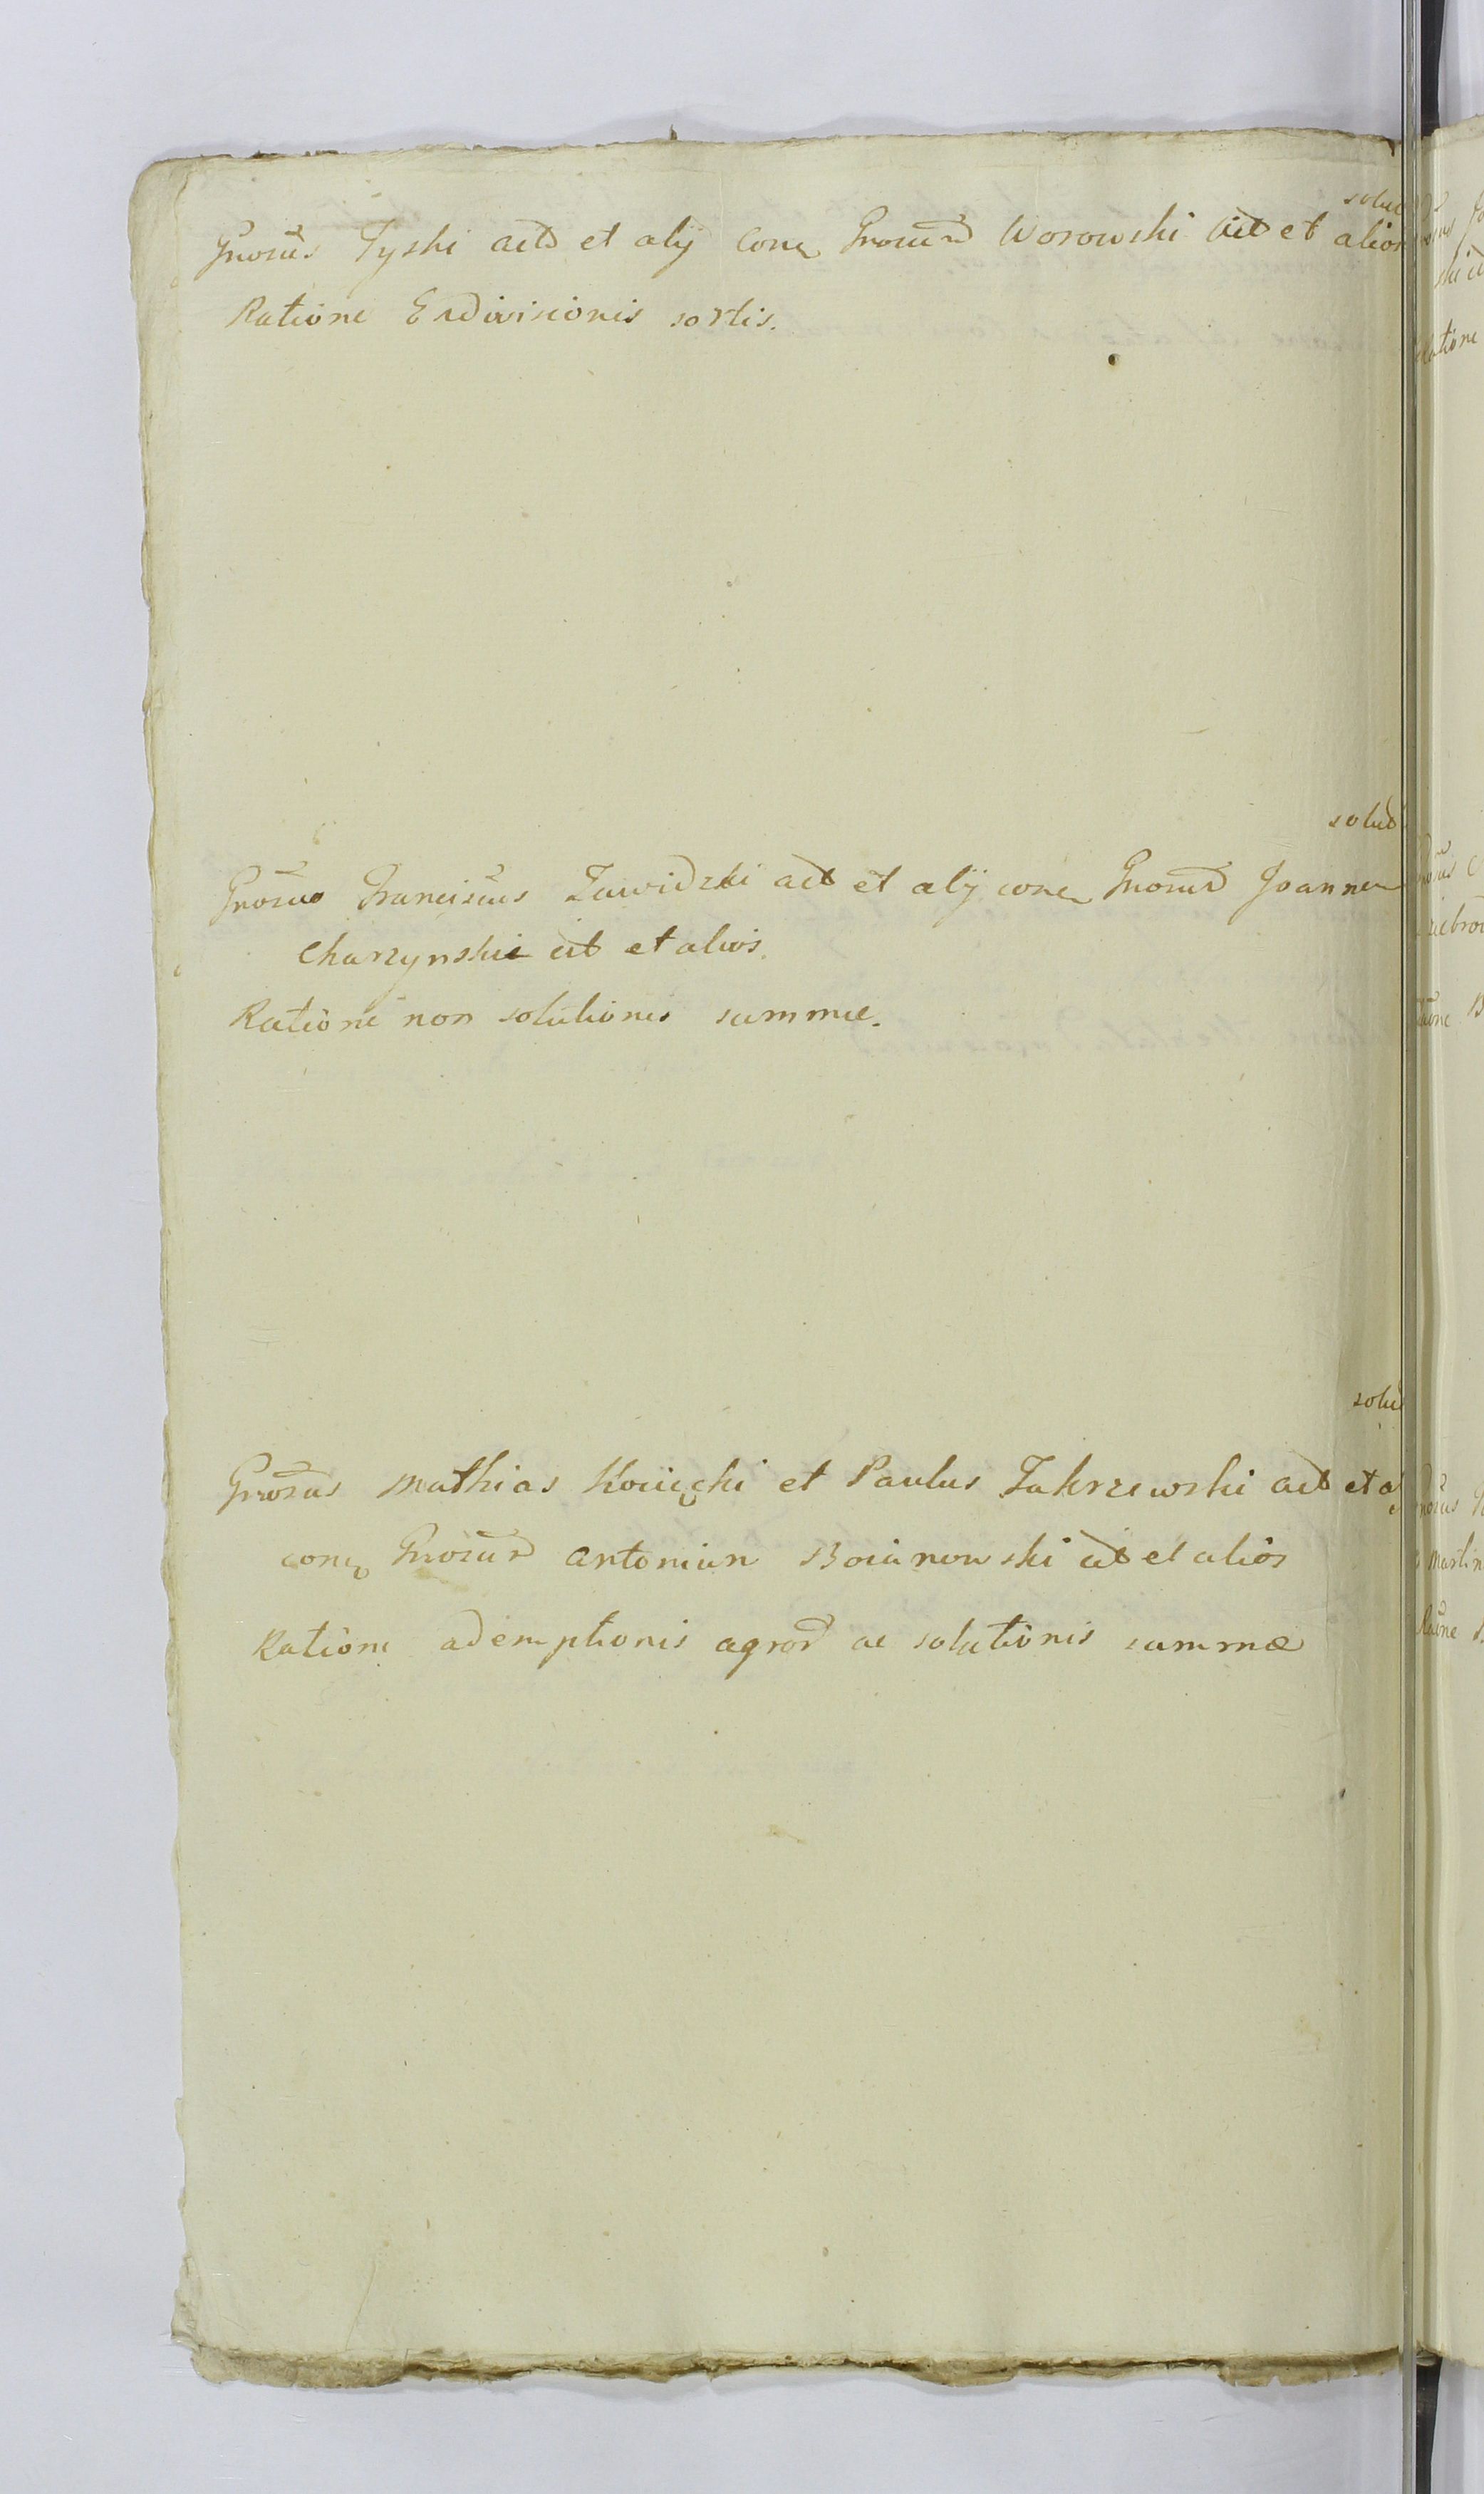 solut
Gnosus Tyski actd et alij conq Gnosum Worowski citd et alios
Ratione Exdivisionis sortis.
solut
Gnosus Franciscus Zawidzki act et alij conq Gnosum Joannem
Charzynski cit et alios.
Ratione non solutionis summae.
solut
Gnosus Mathias et Paulus Zakrzewski act et
conq Gnosum Antonium Boianowski cit et alios
Ratione ademptionis agror ac solutionis summæ